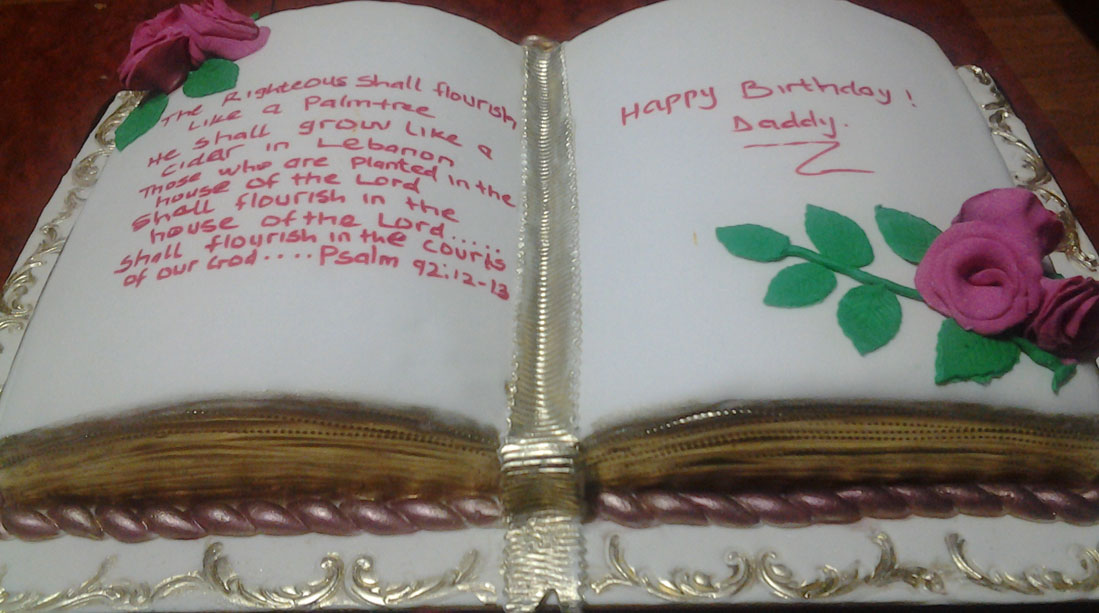 The Righteous Shall flourish
Like a Palmtree
He shall grow like a
cidar in Lebanon
Those who are planted in the
house of the Lord
shall flourish in the
house of the Lord.....
shall flourish in the courts
of our God.... Psalm 92:12-13
Happy Birthday!
Daddy.